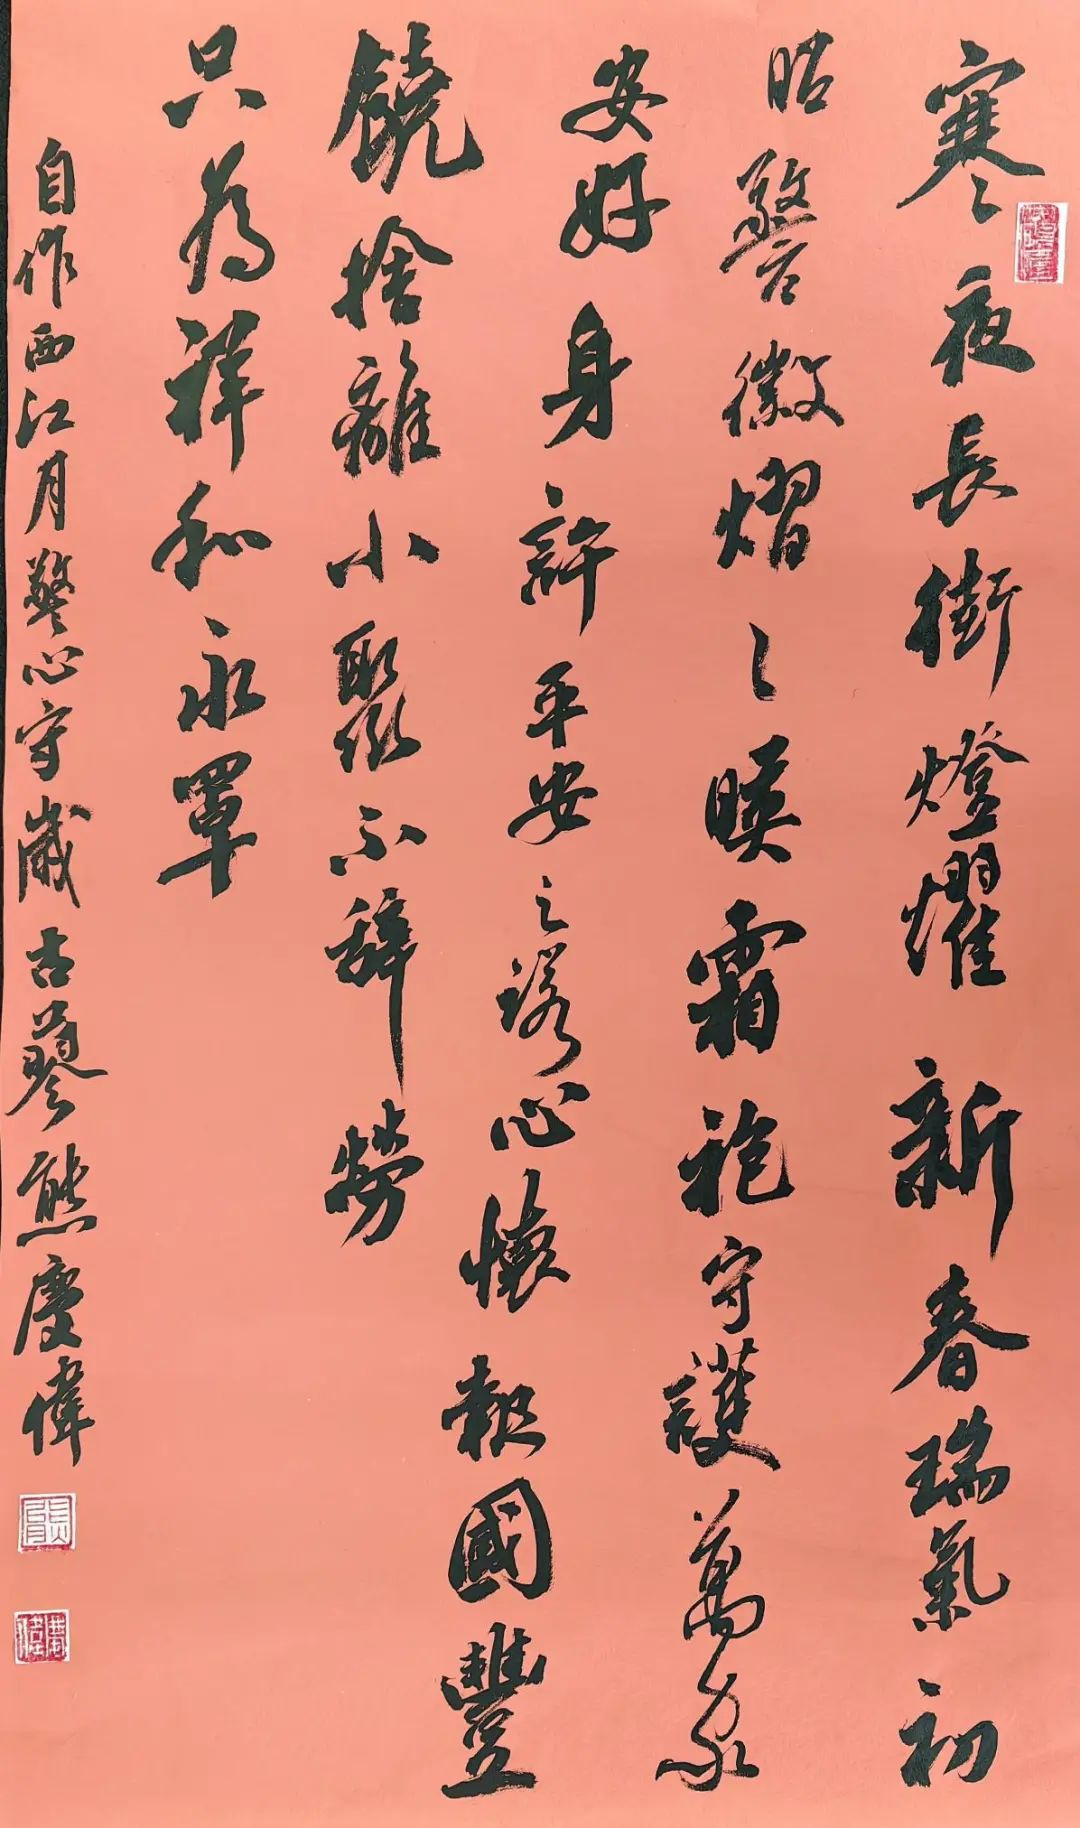 寒夜長街燈耀新春瑞氣初
昭警徽熠〻暎霜袍守護萬家
安好身許平安之諾心懷報國豐
饒捨離小聚不辭勞
只為祥和永罩
自作西江月警心守歲古蓼熊慶偉